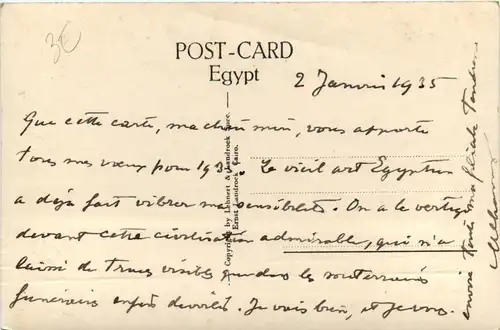 3€
POST-CARD
Egypt
2 Janvier 1935
Que cette carte, ma, vous apporte
tous mes vœux pour 1935. Le vieil art Egyptien
a déjà fort vibrer ma sensibilité. On a le vertige
devant cette civilisation admirable, qui n'a
laissé de traces visibles que dans les souterrains
funéraires enfin dévoilés. Je vais bien, et je vous
envoie toute ma tendre
Copyright by Lehnert & Landrock Succ.
Ernst Landrock, Cairo.